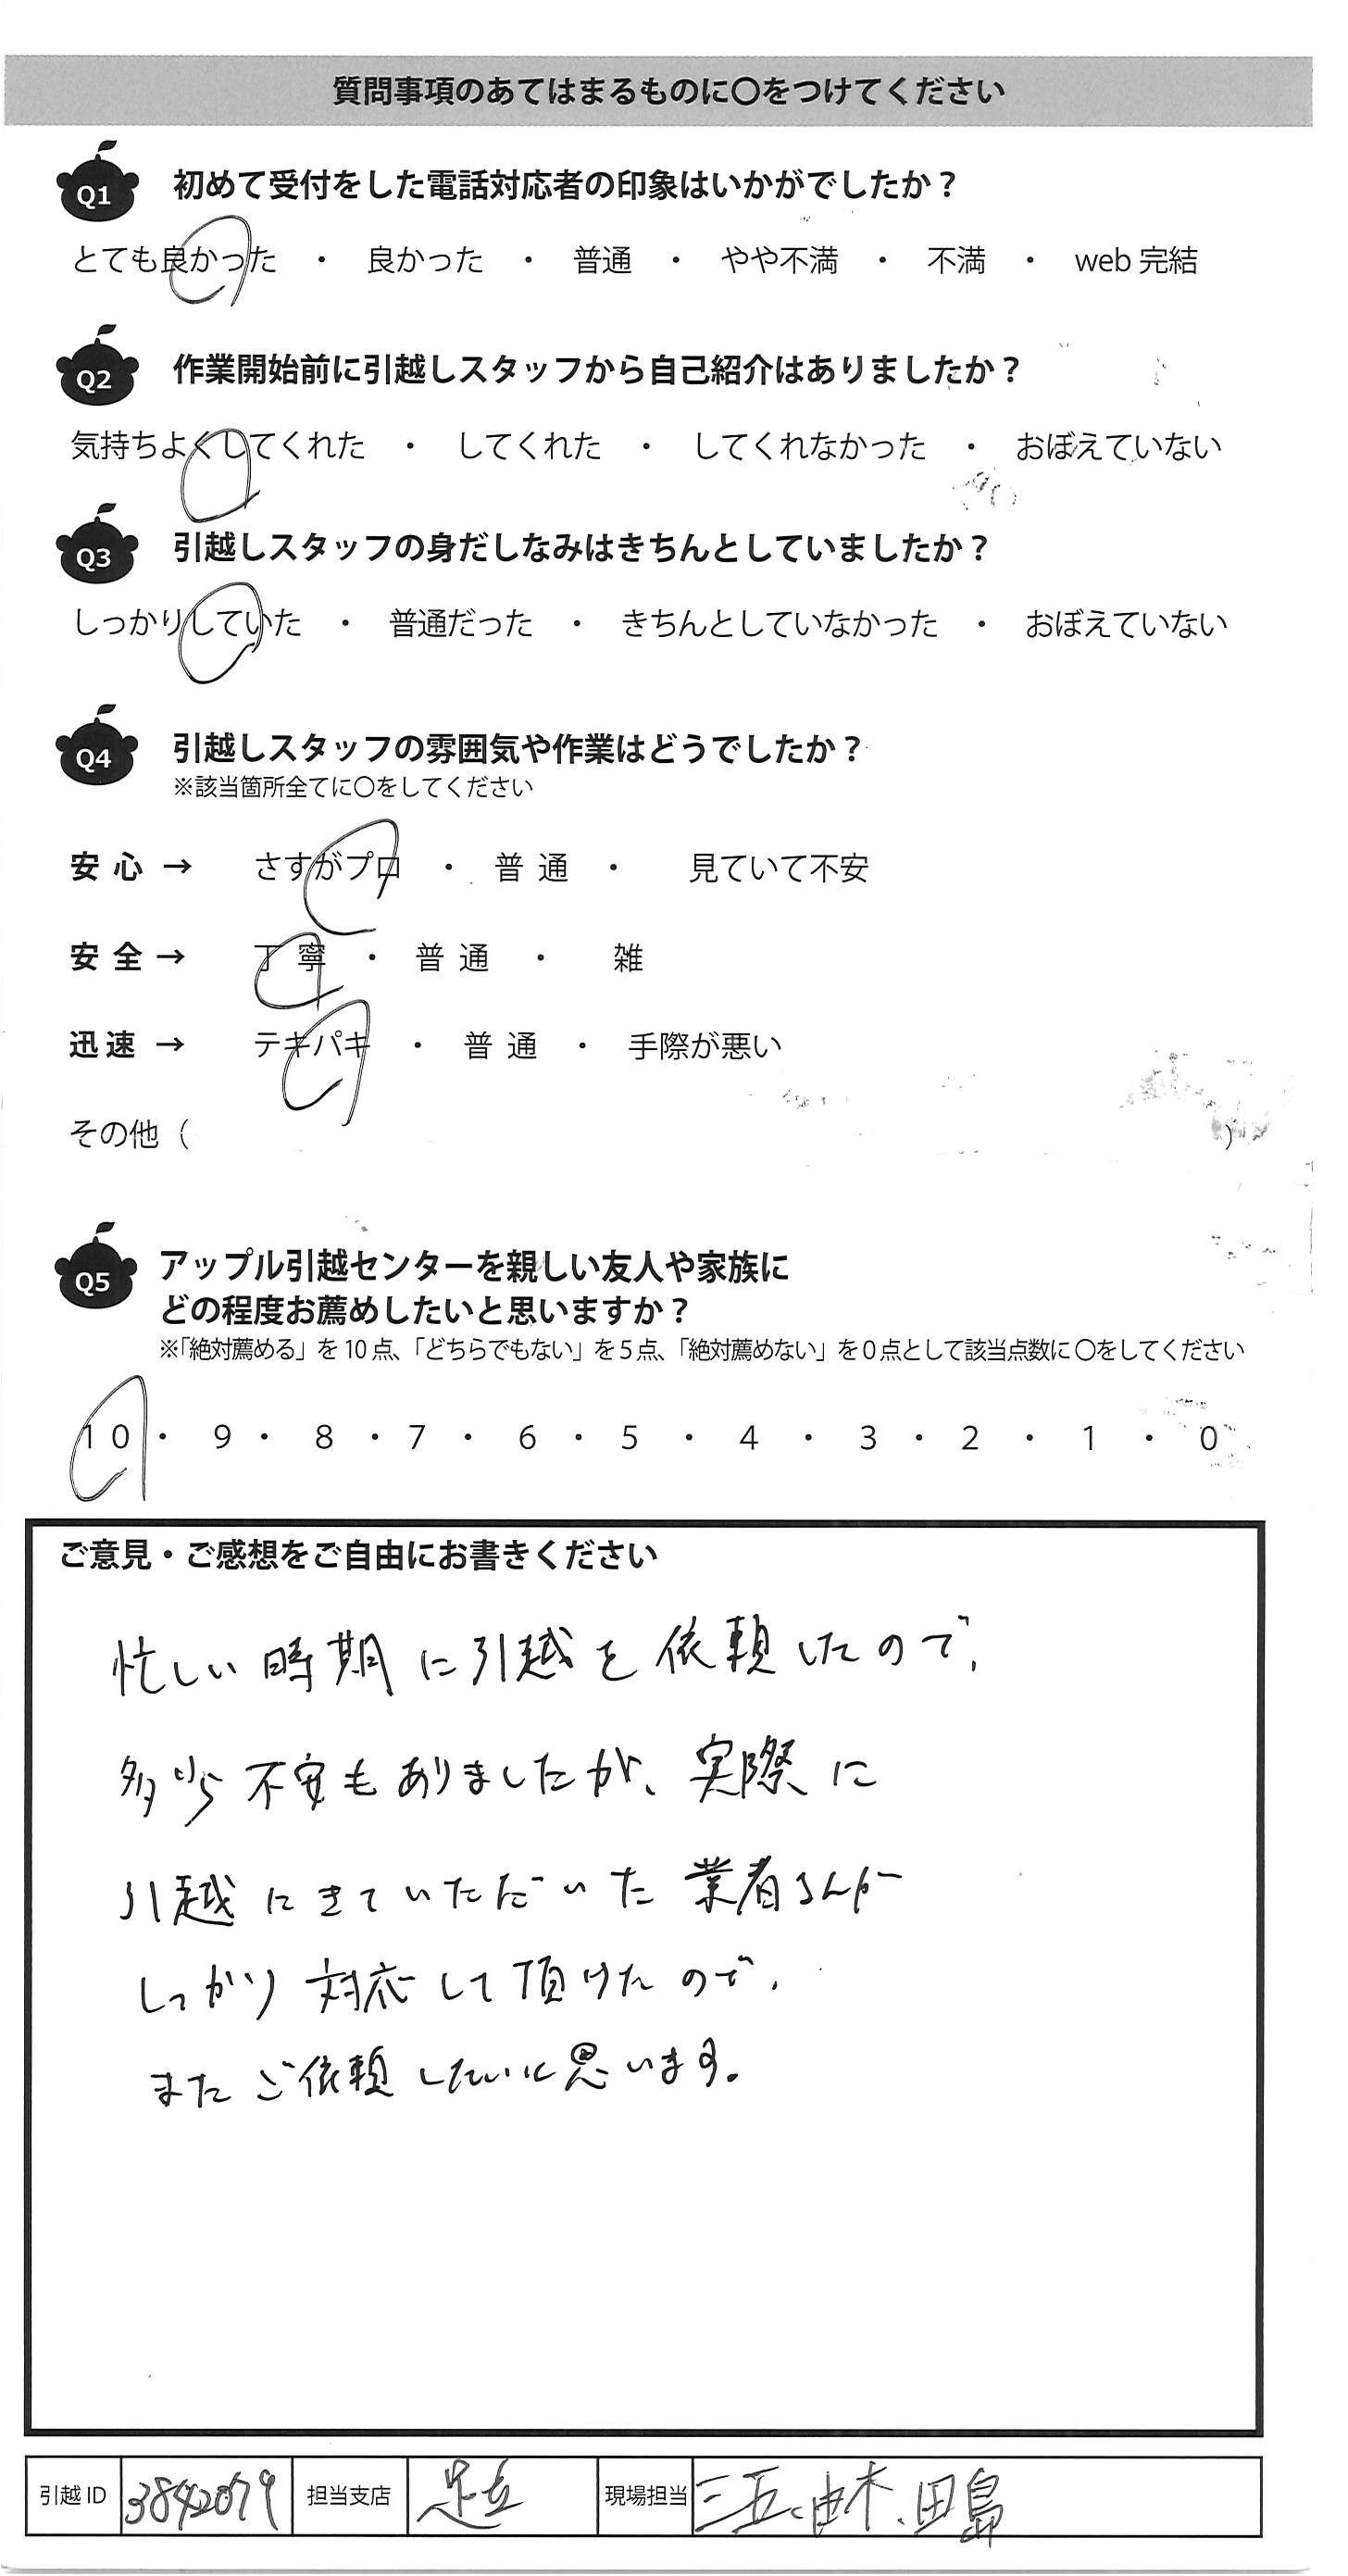 質問事項のあてはまるものに〇をつけてください
Q1 初めて受付をした電話対応者の印象はいかがでしたか？
とても良かった ・ 良かった ・ 普通 ・ やや不満 ・ 不満 ・ web 完結
Q2 作業開始前に引越しスタッフから自己紹介はありましたか？
気持ちよくしてくれた ・ してくれた ・ してくれなかった ・ おぼえていない
Q3 引越しスタッフの身だしなみはきちんとしていましたか？
しっかりしていた ・ 普通だった ・ きちんとしていなかった ・ おぼえていない
Q4 引越しスタッフの雰囲気や作業はどうでしたか？
※該当箇所全てに〇をしてください
安心 → さすがプロ ・ 普通 ・ 見ていて不安
安全 → 丁寧 ・ 普通 ・ 雑
迅速 → テキパキ ・ 普通 ・ 手際が悪い
その他（ ）
Q5 アップル引越センターを親しい友人や家族に
どの程度お薦めしたいと思いますか？
※「絶対薦める」を10点、「どちらでもない」を5点、「絶対薦めない」を0点として該当点数に〇をしてください
10 ・ 9 ・ 8 ・ 7 ・ 6 ・ 5 ・ 4 ・ 3 ・ 2 ・ 1 ・ 0
ご意見・ご感想をご自由にお書きください
忙しい時期に引越を依頼したので、
多少不安もありましたが、実際に
引越にきていただいた業者さんが
しっかり対応して頂けたので、
またご依頼したいと思います。
引越ID 3842079 担当支店 足立 現場担当 三五、由木、田島